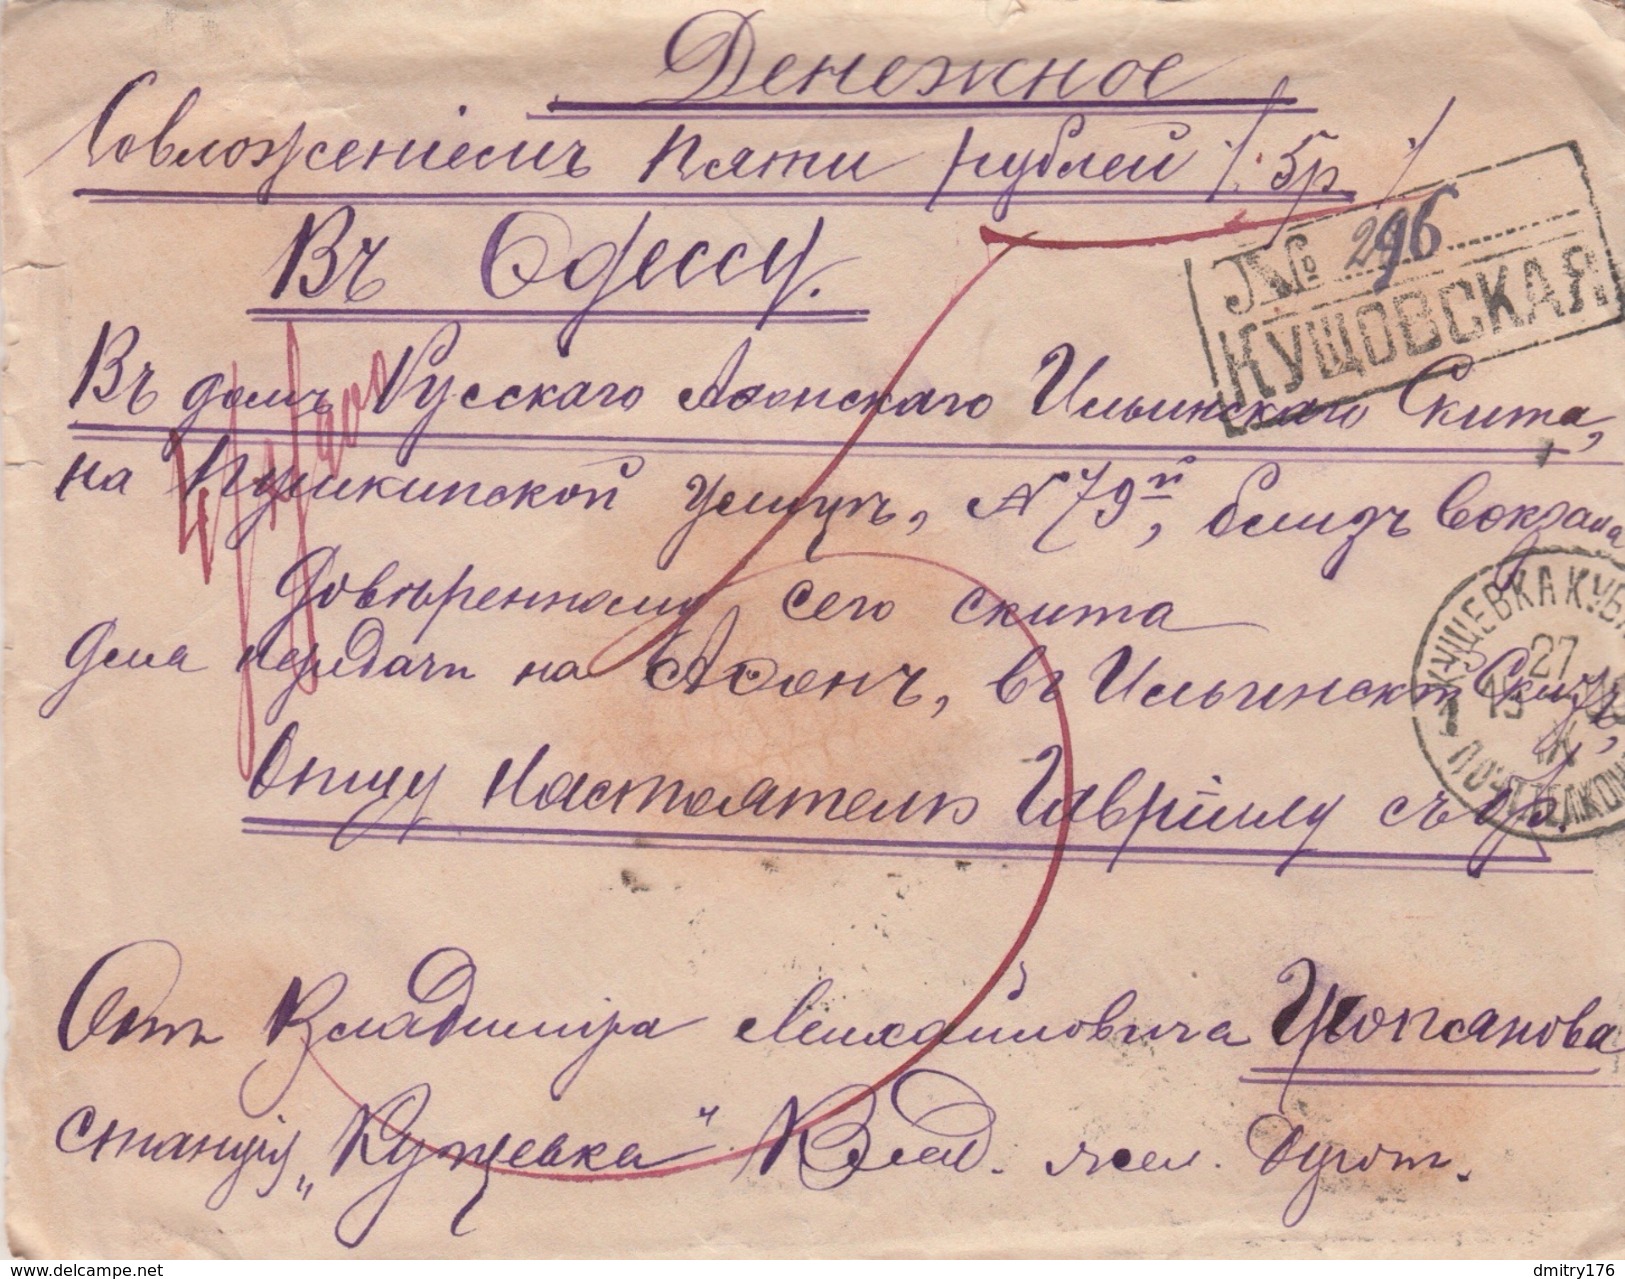 Денежное
Совложеніемъ пяти рублей /. 5р /.
Въ Одессу.
№ 296
КУЩОВСКАЯ
Въ домъ Русскаго Аѳонскаго Ильинскаго Скита,
на Пушкинской улицѣ, № 79й, близъ вокзала
Довѣренному сего скита
для передачи на Аѳонъ, въ Ильинскій Скитъ,
КУЩЕВКА КУБ
27
Отцу Настоятелю Гавріилу съ бр.
Отъ Владиміра Михайловича
станція „Кущевка" Влад. жел. дорог.
www.delcampe.net
dmitry176